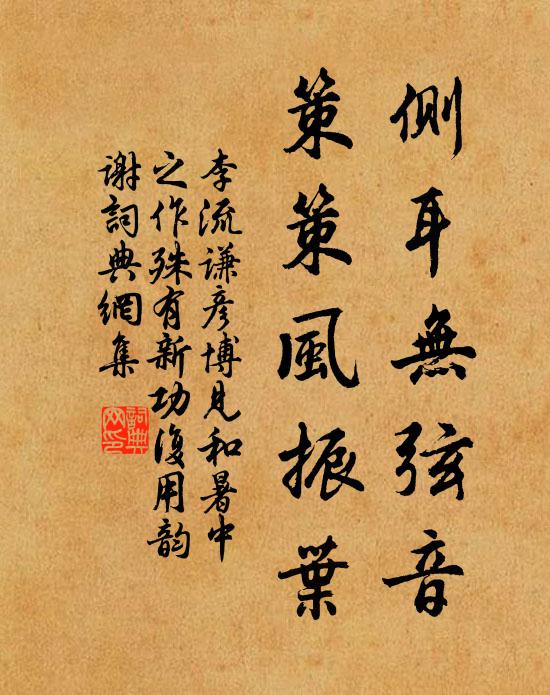 側耳無弦音
策策風振葉
李流謙彥博見和暑中
之作殊有新功復用韵
謝詞典網集
詞典
网印